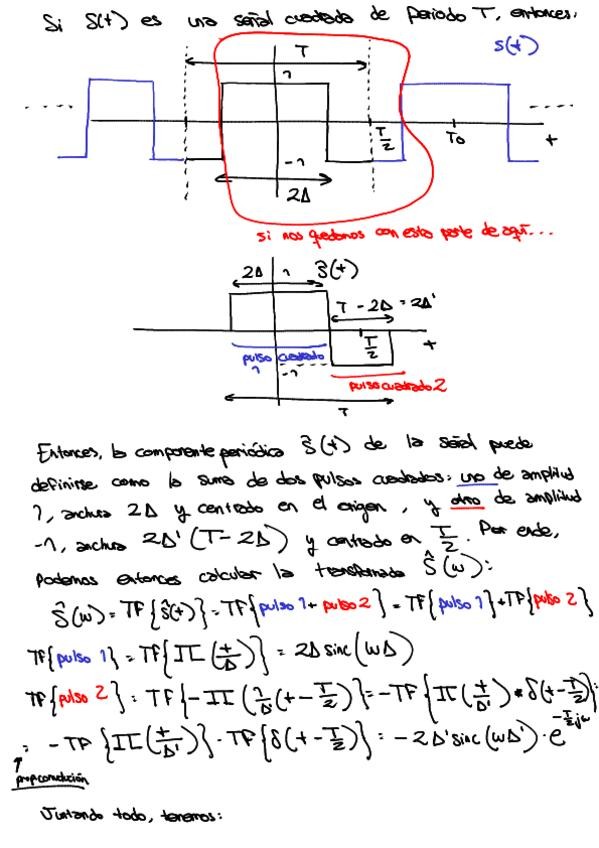 Si S(t) es una señal cuadrada de periodo T, entonces:
T
S(t)
1
T/2
T0
t
-1
2Δ
si nos quedamos con esta parte de aquí...
2Δ 1 ŝ(t)
T - 2Δ = 2Δ'
T/2
t
pulso cuadrado 1
-1
pulso cuadrado 2
T
Entonces, la componente periódica ŝ(t) de la señal puede
definirse como la suma de dos pulsos cuadrados: uno de amplitud
1, anchura 2Δ y centrado en el origen, y otro de amplitud
-1, anchura 2Δ' (T-2Δ) y centrado en T/2. Por ende,
podemos entonces calcular la transformada Ŝ(ω):
Ŝ(ω) = TF{ŝ(t)} = TF{pulso 1 + pulso 2} = TF{pulso 1} + TF{pulso 2}
TF{pulso 1} = TF{Π(t/Δ)} = 2Δ sinc(ωΔ)
TF{pulso 2} = TF{-Π(1/Δ'(t-T/2))} = -TF{Π(t/Δ') * δ(t-T/2)} =
= -TF{Π(t/Δ')} · TF{δ(t-T/2)} = -2Δ' sinc(ωΔ') · e^(-T/2 jω)
prop convolución
Juntando todo, tenemos: